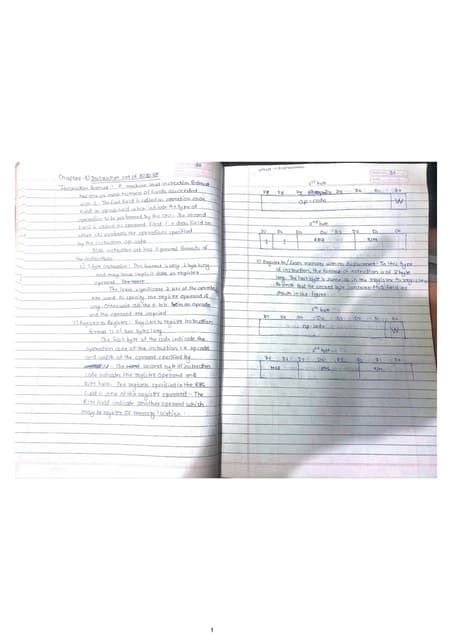 Chapter-3) Instruction set of 8086 up
Instruction format :- A machine level instruction format
has one or more numbers of fields associated
with it. The first field is called as operation code
field or opcode field which indicate the type of
operation to be performed by the CPU. The second
field is called as operand field / data field on
which CPU performs the operations specified
by the instruction op-code
8086 instruction set has general formats of
the instruction.
1 byte instruction : This format is only 1 byte long
and may have implicit data or register
operand.
The least significance 3 bits of the opcode
are used to specify the register operand if
any. Otherwise all the 8 bits form an opcode
and the operand are implied
2) Register to Register : Register to register instruction
format is of two bytes long.
The first byte of the code indicate the
operation code of the instruction i.e. op code
and width of the operand specified by
The second byte of instruction
code indicates the register operand and
R/M field. The register specified in the REG
field is one of the register operand. The
R/M field indicate another operand which
may be register or memory location.
30
1st byte
D7 D6 D5 D4 D3 D2 D1 D0
op-code W
2nd byte
1 1 REG R/M
3) Register to/from memory with no displacement: In this type
of instruction, the format of instruction is of 2 byte
long. The first byte is same as in the register to register
format. But the second byte contains MOD field as
shown in the figure.
1st byte
D7 D6 D5 D4 D3 D2 D1 D0
op-code W
2nd byte
MOD REG R/M
1